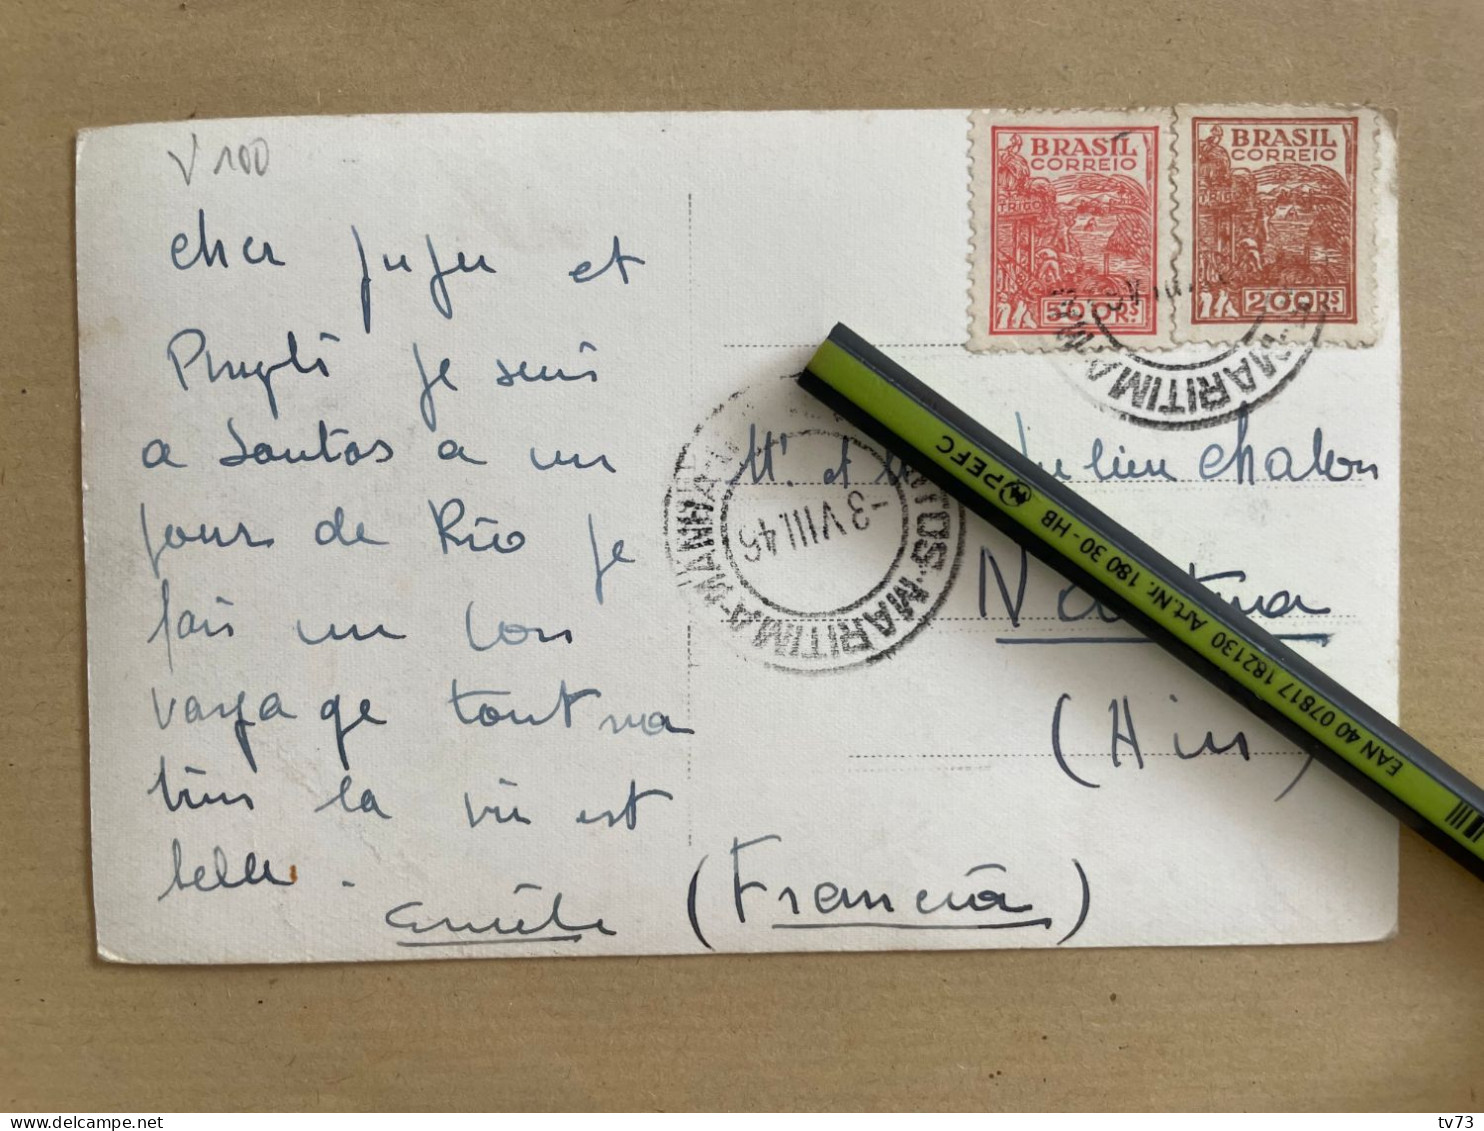 V 100
BRASIL
CORREIO
TRIGO
500 RS
BRASIL
CORREIO
TRIGO
200 RS
MARITIMA
MARITIMA
cher Juju et
je suis
a Santos a un
jour de Rio je
fais un bon
voyage tout va
bien la vie est
belle.
SANTOS MARITIMA
-3 VIII.46
Mr. et Julien Chalon
N
(Ain)
(Francia)
PEFC
HB
Art.Nr. 180 30 - HB
EAN 40 07817 182130
tv73